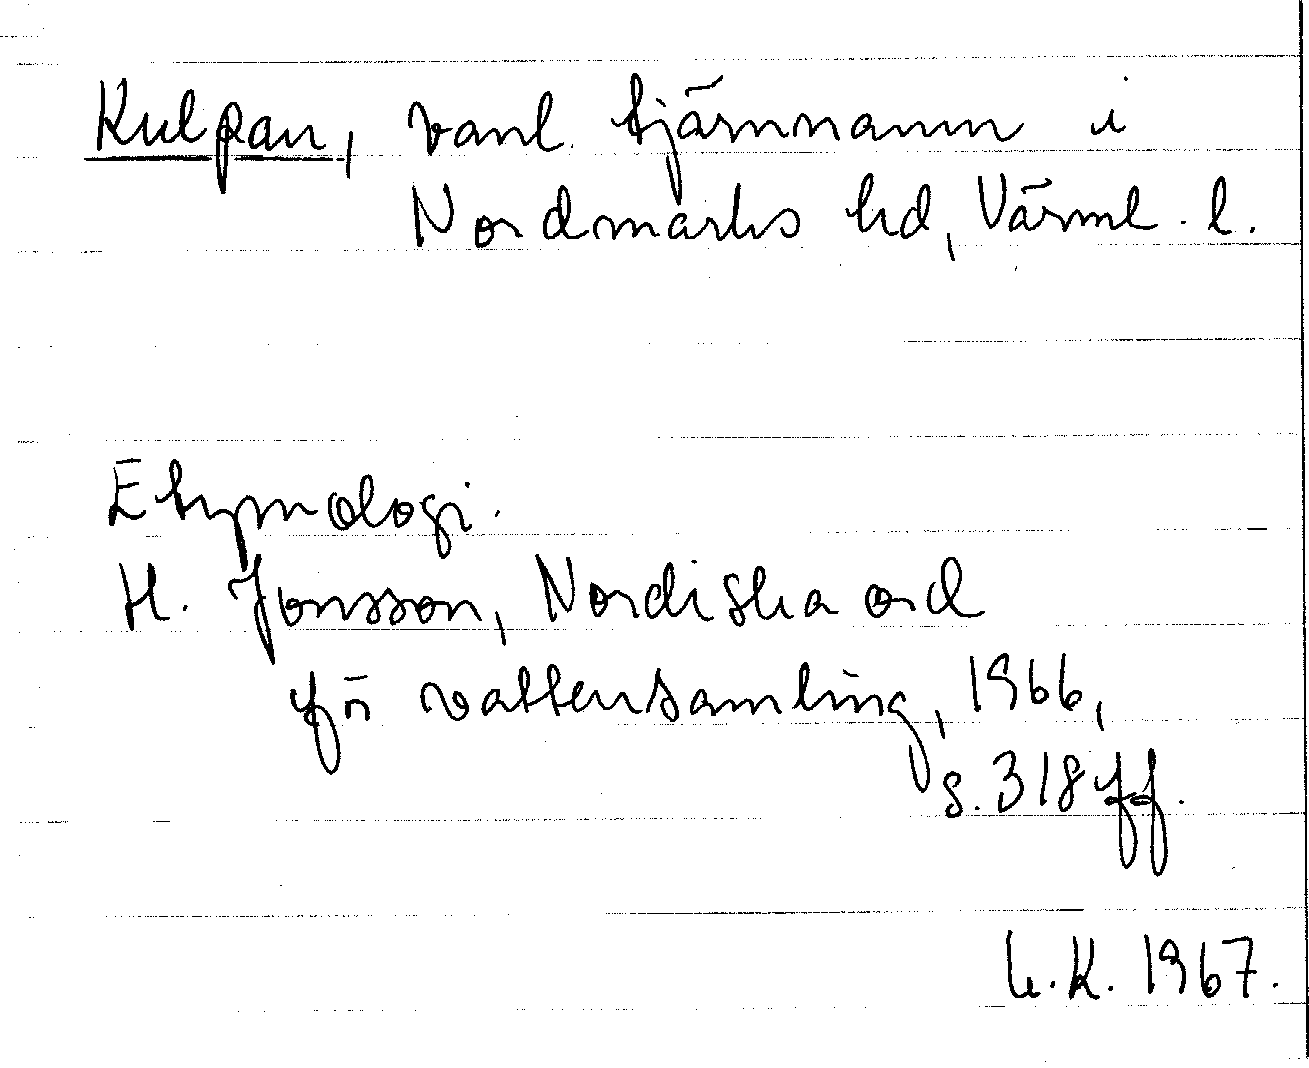 Kulpan, vanl. tjärnnamn i
Nordmarks hd, Värml. l.
Etymologi.
H. Jonsson, Nordiska ord
för vattensamling, 1966,
s. 318 ff.
K. 1967.